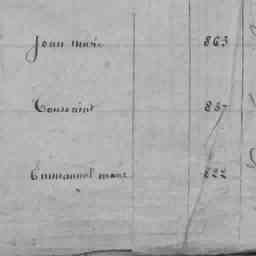 Jean marie 863
Toussaint 837
Emmanuel marie 822